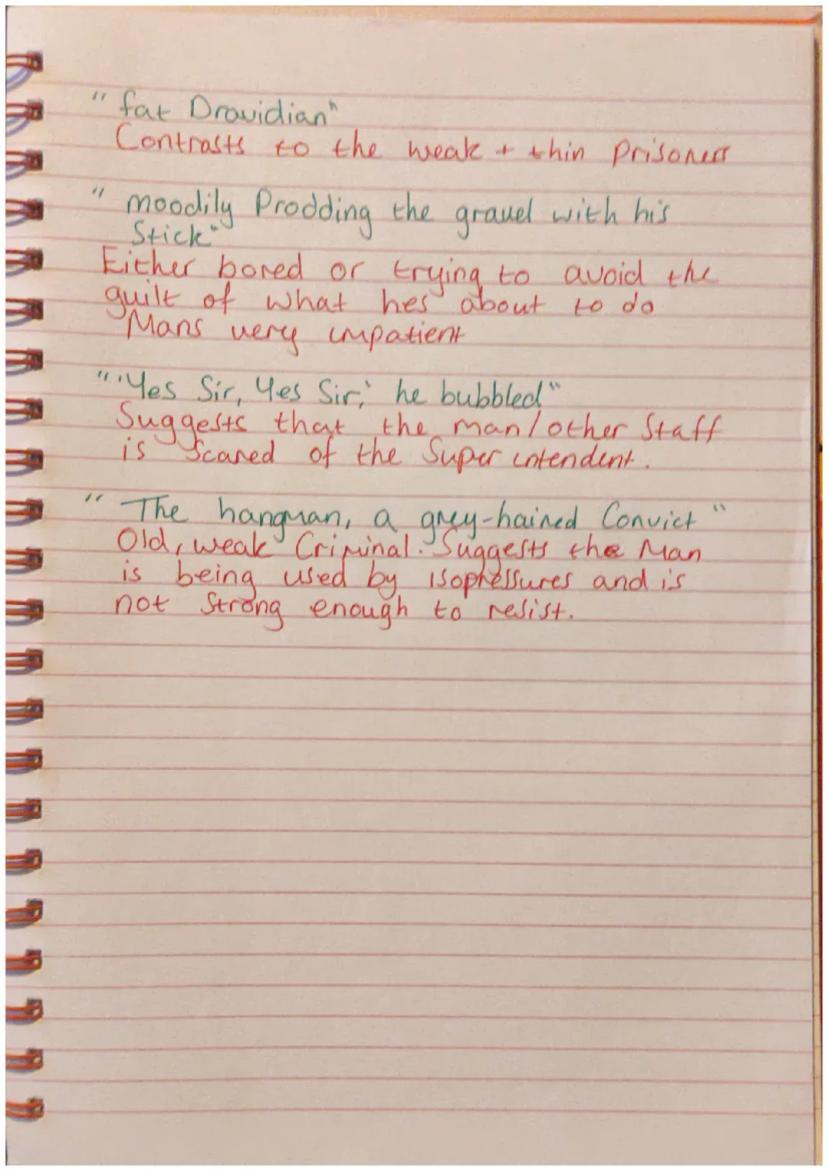 " fat Dravidian"
Contrasts to the weak + thin Prisoners
" moodily Prodding the gravel with his
Stick"
Either bored or trying to avoid the
guilt of what hes about to do
Mans very impatient
"'Yes Sir, Yes Sir,' he bubbled"
Suggests that the man/other Staff
is Scared of the Super intendent.
" The hangman, a grey-haired Convict "
Old, weak Criminal. Suggests the Man
is being used by and is
not Strong enough to resist.